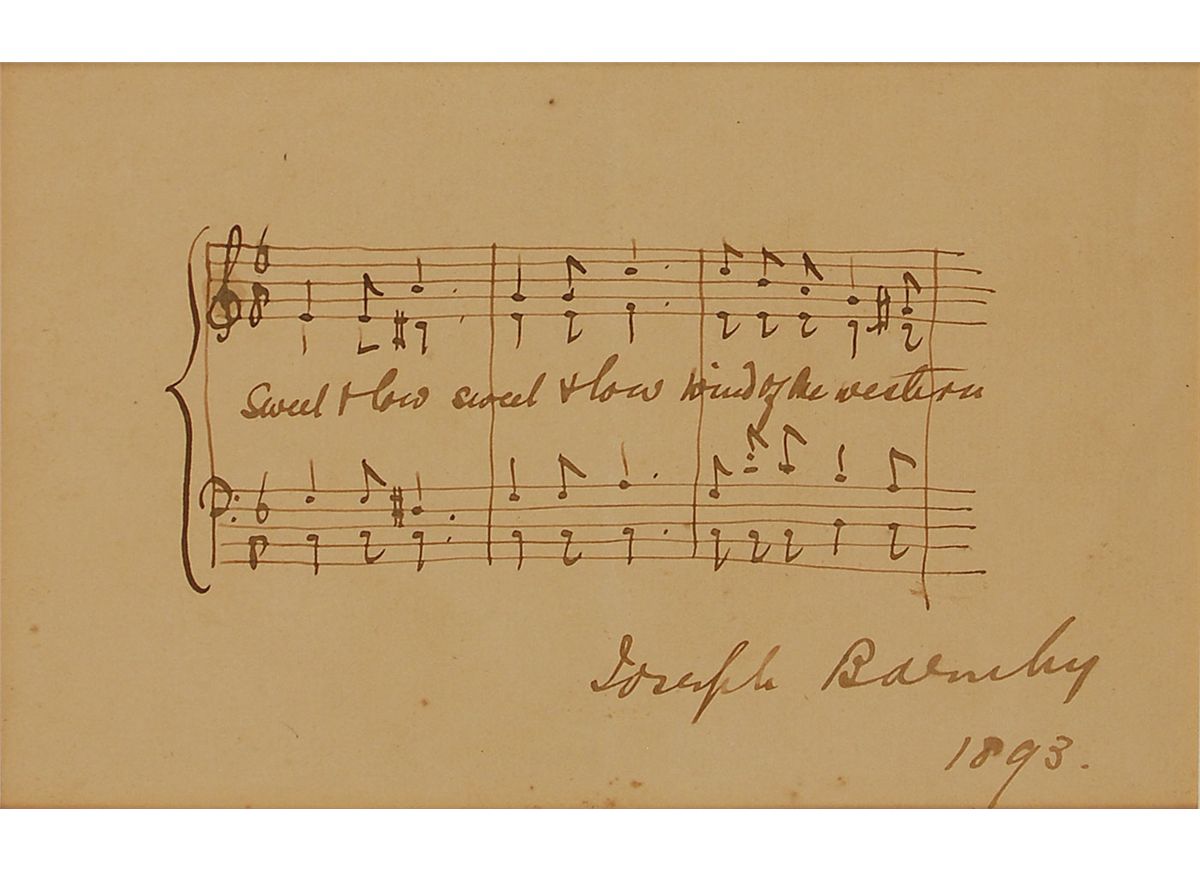 6
8
Sweet & low sweet & low wind of the western
6
8
Joseph Barnby
1893.